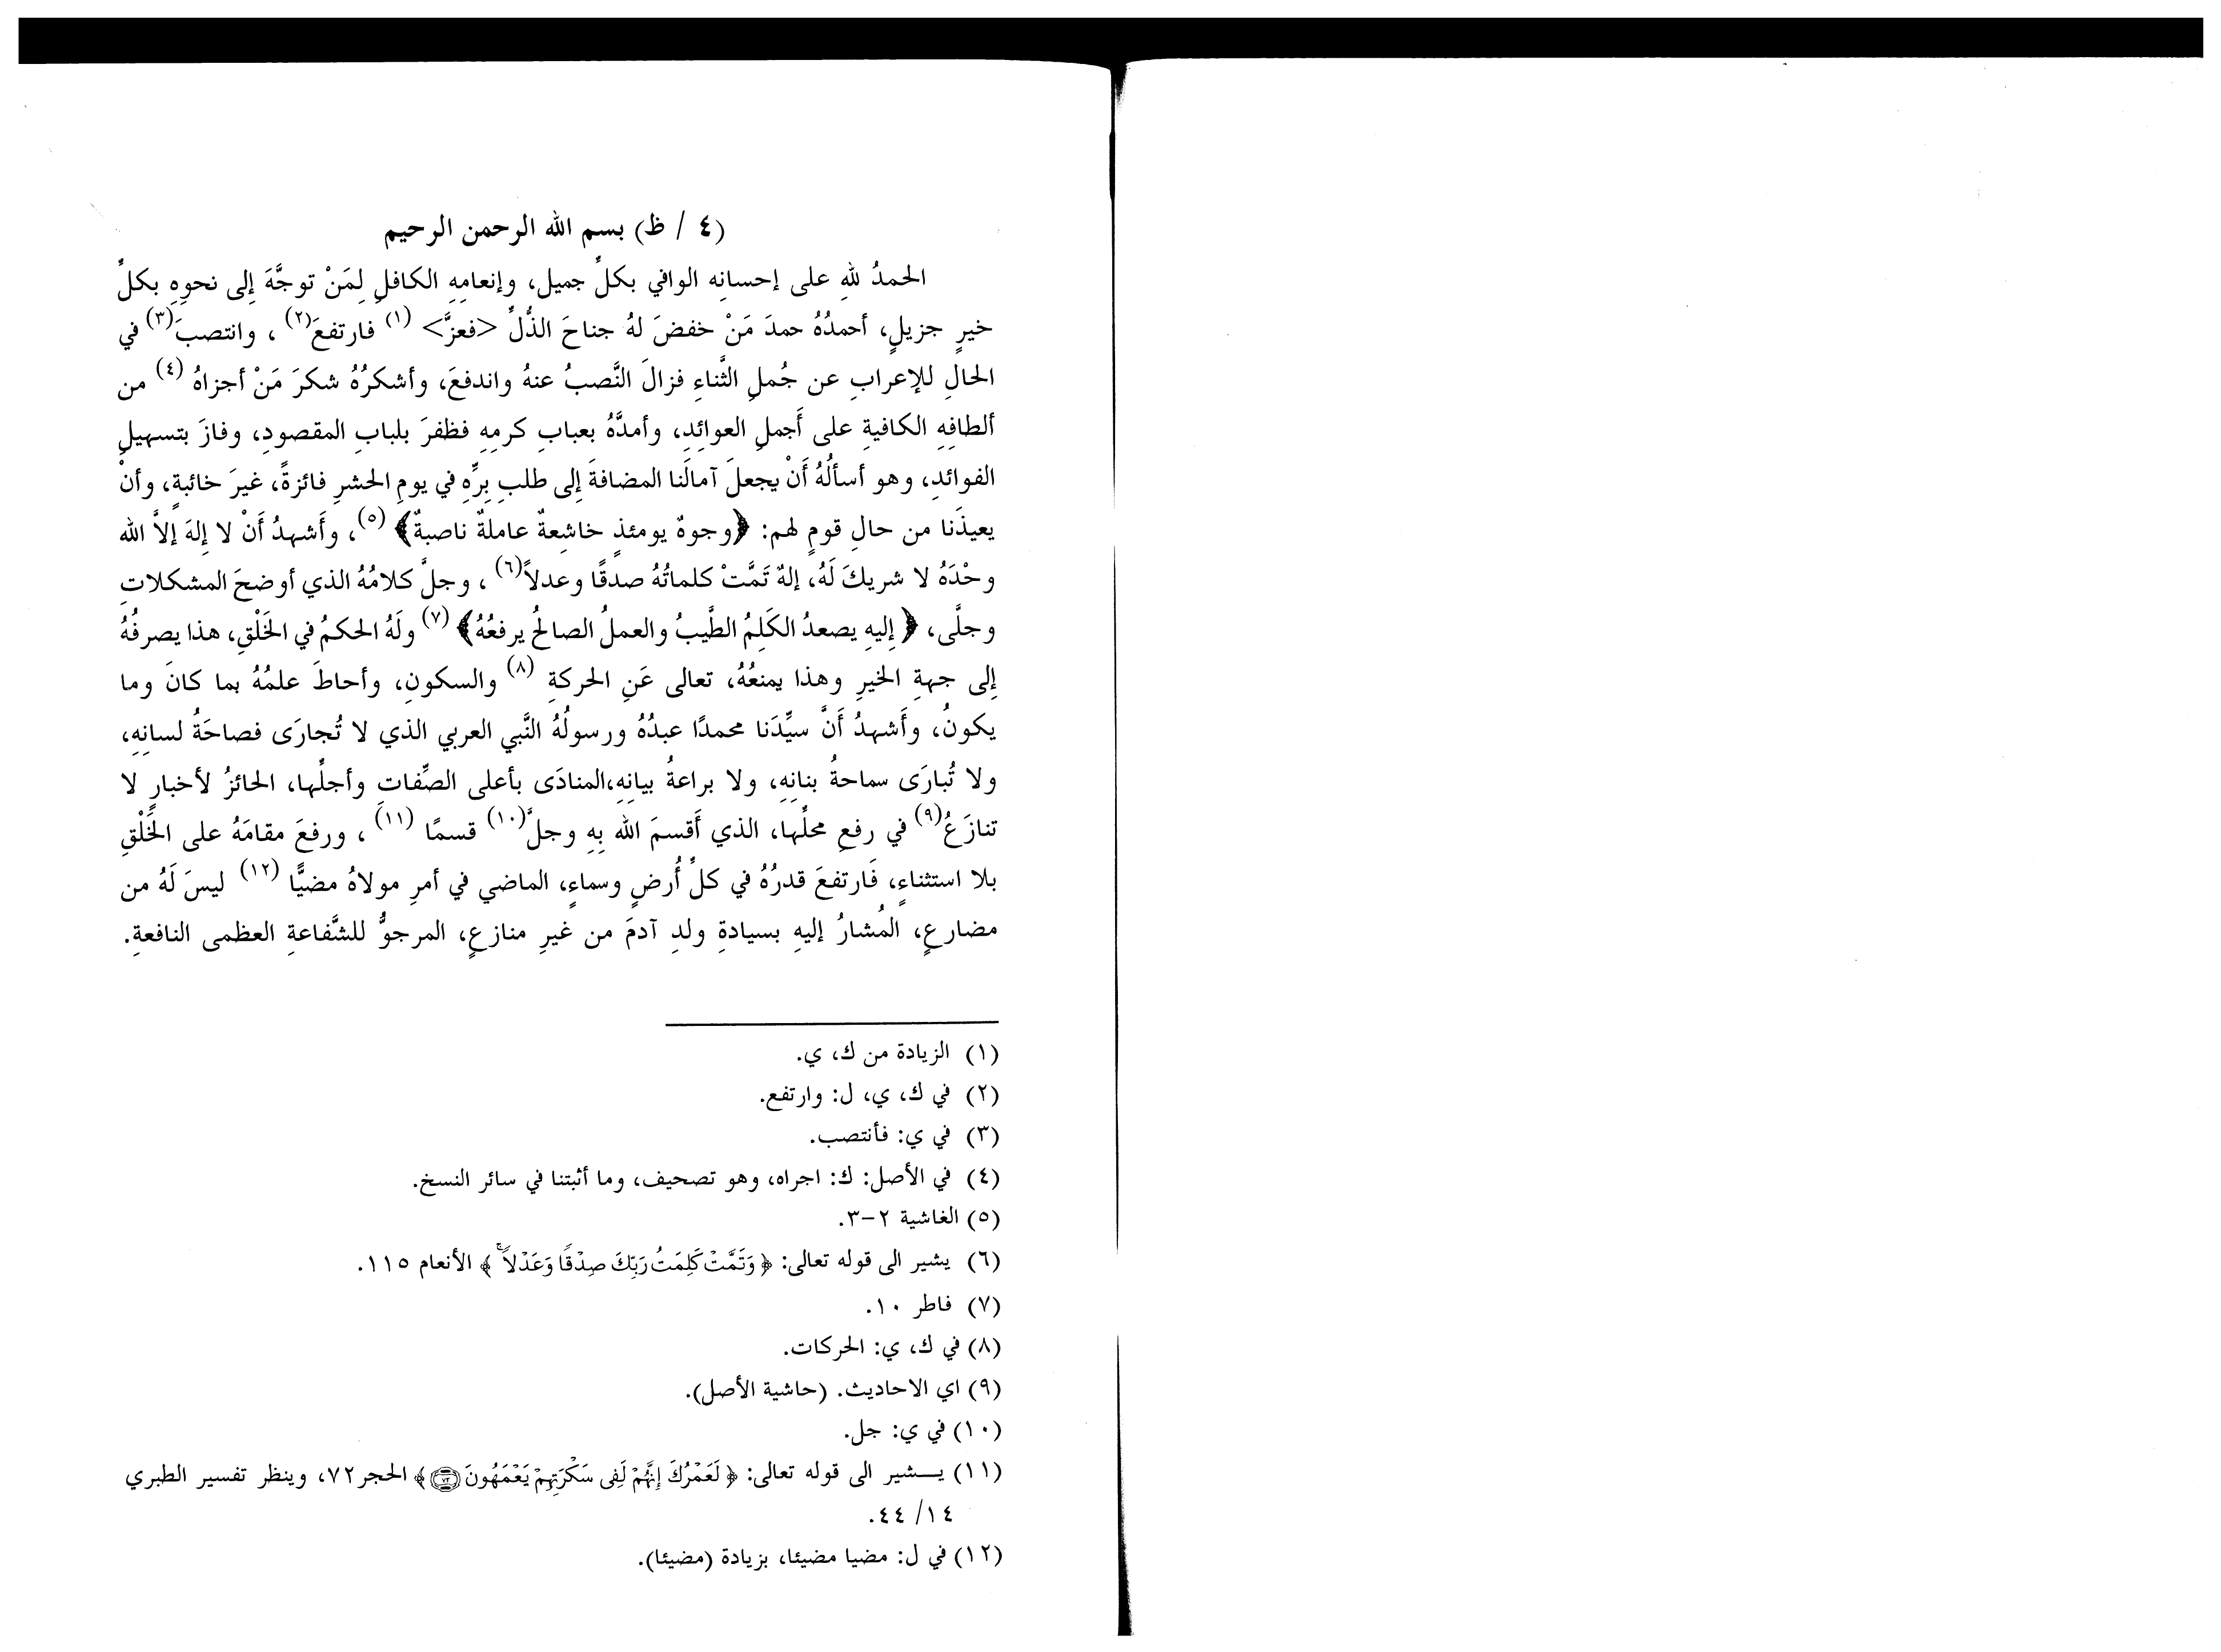 (٤ / ظ) بسم الله الرحمن الرحيم
الحمدُ للهِ على إحسانِه الوافي بكلِّ جميل، وإنعامِهِ الكافلِ لِمَنْ توجَّهَ إِلى نحوِهِ بكلِّ
خيرٍ جزيلٍ، أحمدُهُ حمدَ مَنْ خفضَ لهُ جناحَ الذُّلِّ <فعزَّ> (١) فارتفعَ(٢)، وانتصبَ(٣) في
الحالِ للإعرابِ عن جُملِ الثَّناءِ فزالَ النَّصبُ عنهُ واندفعَ، وأشكرُهُ شكرَ مَنْ أجزاهُ (٤) من
ألطافِهِ الكافيةِ على أَجملِ العوائِدِ، وأمدَّهُ بعبابِ كرمِهِ فظفرَ بلبابِ المقصودِ، وفازَ بتسهيلِ
الفوائدِ، وهو أسألُهُ أَنْ يجعلَ آمالَنا المضافةَ إِلى طلبِ بِرِّهِ في يومِ الحشرِ فائزةً، غيرَ خائبةٍ، وأنْ
يعيذَنا من حالِ قومٍ لهم: ﴿وجوهٌ يومئذٍ خاشِعةٌ عاملةٌ ناصبةٌ﴾ (٥)، وأَشهدُ أَنْ لا إِلهَ إلاَّ الله
وحْدَهُ لا شريكَ لَهُ، إلهٌ تَمَّتْ كلماتُهُ صدقًا وعدلاً(٦)، وجلَّ كلامُهُ الذي أوضحَ المشكلاتِ
وجلَّى، ﴿إِليهِ يصعدُ الكَلِمُ الطَّيبُ والعملُ الصالحُ يرفعُهُ﴾ (٧) ولَهُ الحكمُ في الخَلْقِ، هذا يصرفُهُ
إِلى جهةِ الخيرِ وهذا يمنعُهُ، تعالى عَنِ الحركةِ (٨) والسكونِ، وأحاطَ علمُهُ بما كانَ وما
يكونُ، وأَشهدُ أَنَّ سيِّدَنا محمدًا عبدُهُ ورسولُهُ النَّبي العربي الذي لا تُجارَى فصاحَةُ لسانِهِ،
ولا تُبارَى سماحةُ بنانِهِ، ولا براعةُ بيانِهِ،المنادَى بأعلى الصِّفاتِ وأجلِّها، الحائزُ لأخبارٍ لا
تنازَعُ(٩) في رفعِ محلِّها، الذي أَقسمَ الله بِهِ وجلَّ(١٠) قسمًا (١١)، ورفعَ مقامَهُ على الخَلْقِ
بلا استثناءٍ، فَارتفعَ قدرُهُ في كلِّ أُرضٍ وسماءٍ، الماضي في أمرِ مولاهُ مضيًّا (١٢) ليسَ لَهُ من
مضارعٍ، المُشارُ إليهِ بسيادةِ ولدِ آدمَ من غيرِ منازعٍ، المرجوُّ للشَّفاعةِ العظمى النافعةِ.
(١) الزيادة من ك، ي.
(٢) في ك، ي، ل: وارتفع.
(٣) في ي: فأنتصب.
(٤) في الأصل: ك: اجراه، وهو تصحيف، وما أثبتنا في سائر النسخ.
(٥) الغاشية ٢-٣.
(٦) يشير الى قوله تعالى: ﴿وَتَمَّتۡ كَلِمَتُ رَبِّكَ صِدۡقٗا وَعَدۡلاًۚ﴾ الأنعام ١١٥.
(٧) فاطر ١٠.
(٨) في ك، ي: الحركات.
(٩) اي الاحاديث. (حاشية الأصل).
(١٠) في ي: جل.
(١١) يـــشير الى قوله تعالى: ﴿لَعَمۡرُكَ إِنَّهُمۡ لَفِى سَكۡرَتِهِمۡ يَعۡمَهُونَ ۝٧٢﴾ الحجر٧٢، وينظر تفسير الطبري
١٤/ ٤٤.
(١٢) في ل: مضيا مضيئا، بزيادة (مضيئا).